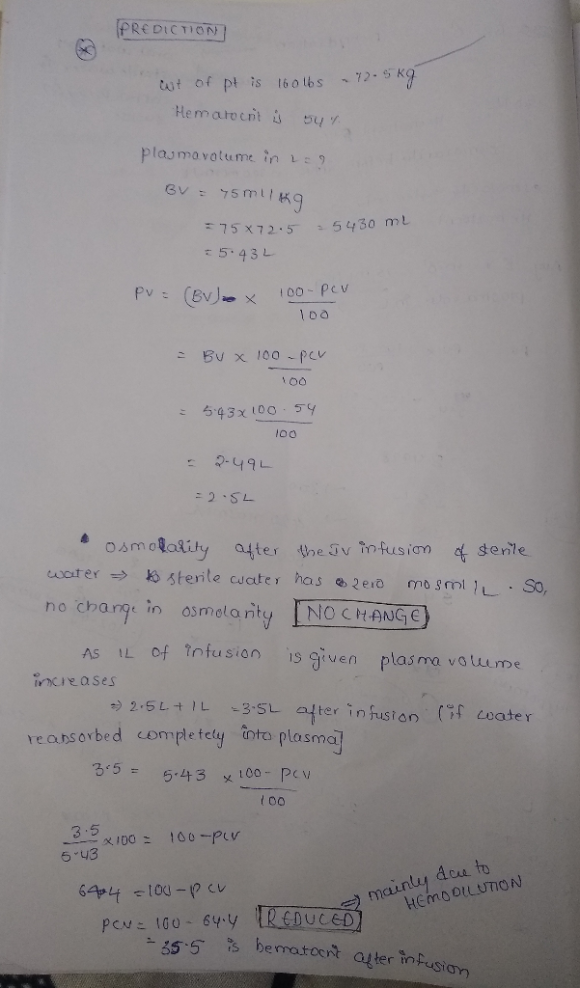 PREDICTION
wt of pt is 160lbs ~ 72.5 Kg
Hematocrit is 54%
plasmavolume in L = ?
BV = 75ml/Kg
= 75 x 72.5 = 5430 mL
= 5.43 L
PV = (BV) x 100 - PCV
100
= BV x 100 - PCV
100
= 5.43 x 100 - 54
100
= 2.49L
= 2.5L
• Osmolality after the IV infusion of sterile
water => sterile water has zero mosml/L. So,
no change in osmolarity [NO CHANGE]
As 1L of infusion is given plasma volume
increases
=> 2.5L + 1L = 3.5L after infusion (if water
reabsorbed completely into plasma]
3.5 = 5.43 x 100 - PCV
100
3.5 x 100 = 100 - PCV
5.43
64.4 = 100 - PCV
PCV = 100 - 64.4 [REDUCED] => mainly due to HEMODILUTION
= 35.5 is hematocrit after infusion